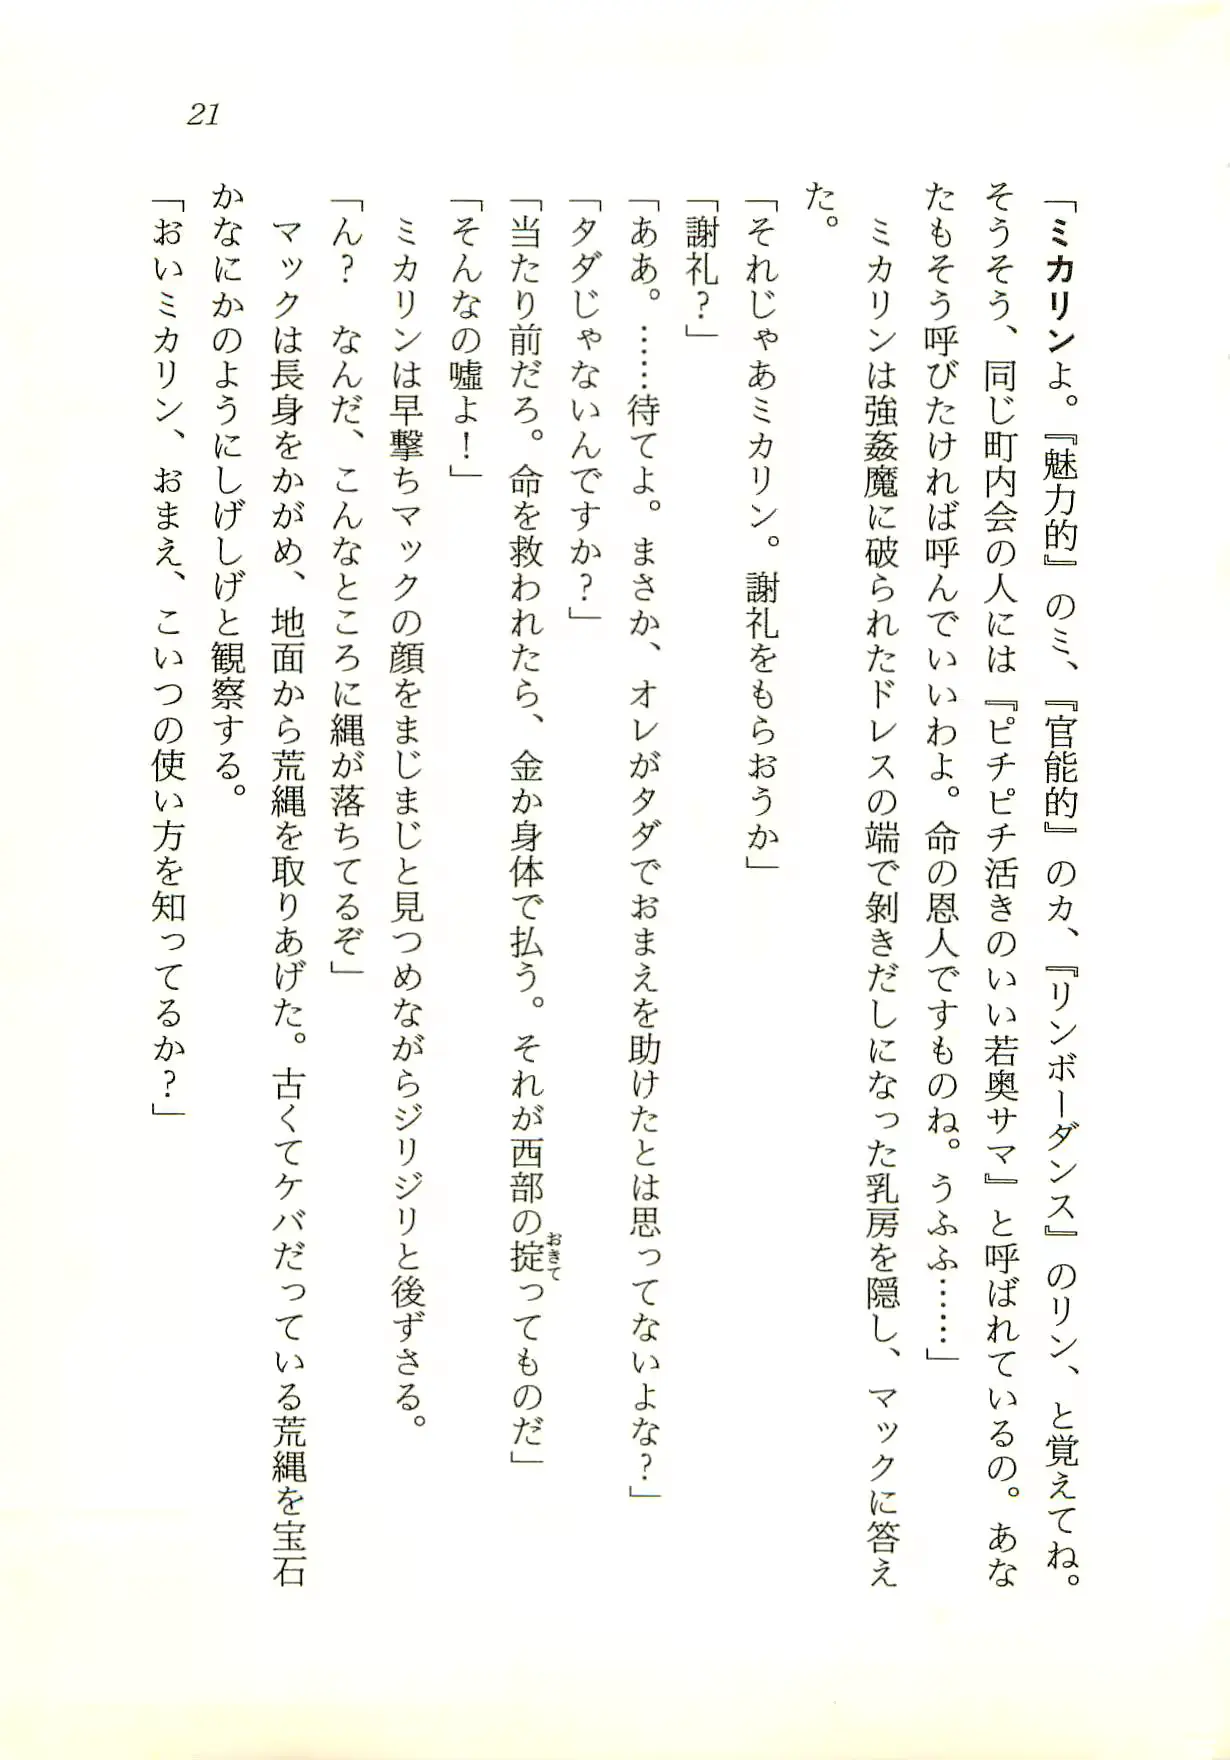 21
「ミカリンよ。『魅力的』のミ、『官能的』のカ、『リンボーダンス』のリン、と覚えてね。
そうそう、同じ町内会の人には『ピチピチ活きのいい若奥サマ』と呼ばれているの。あな
たもそう呼びたければ呼んでいいわよ。命の恩人ですものね。うふふ……」
　ミカリンは強姦魔に破られたドレスの端で剝きだしになった乳房を隠し、マックに答え
た。
「それじゃあミカリン。謝礼をもらおうか」
「謝礼？」
「ああ。……待てよ。まさか、オレがタダでおまえを助けたとは思ってないよな？」
「タダじゃないんですか？」
「当たり前だろ。命を救われたら、金か身体で払う。それが西部の掟おきてってものだ」
「そんなの嘘よ！」
　ミカリンは早撃ちマックの顔をまじまじと見つめながらジリジリと後ずさる。
「ん？　なんだ、こんなところに縄が落ちてるぞ」
　マックは長身をかがめ、地面から荒縄を取りあげた。古くてケバだっている荒縄を宝石
かなにかのようにしげしげと観察する。
「おいミカリン、おまえ、こいつの使い方を知ってるか？」